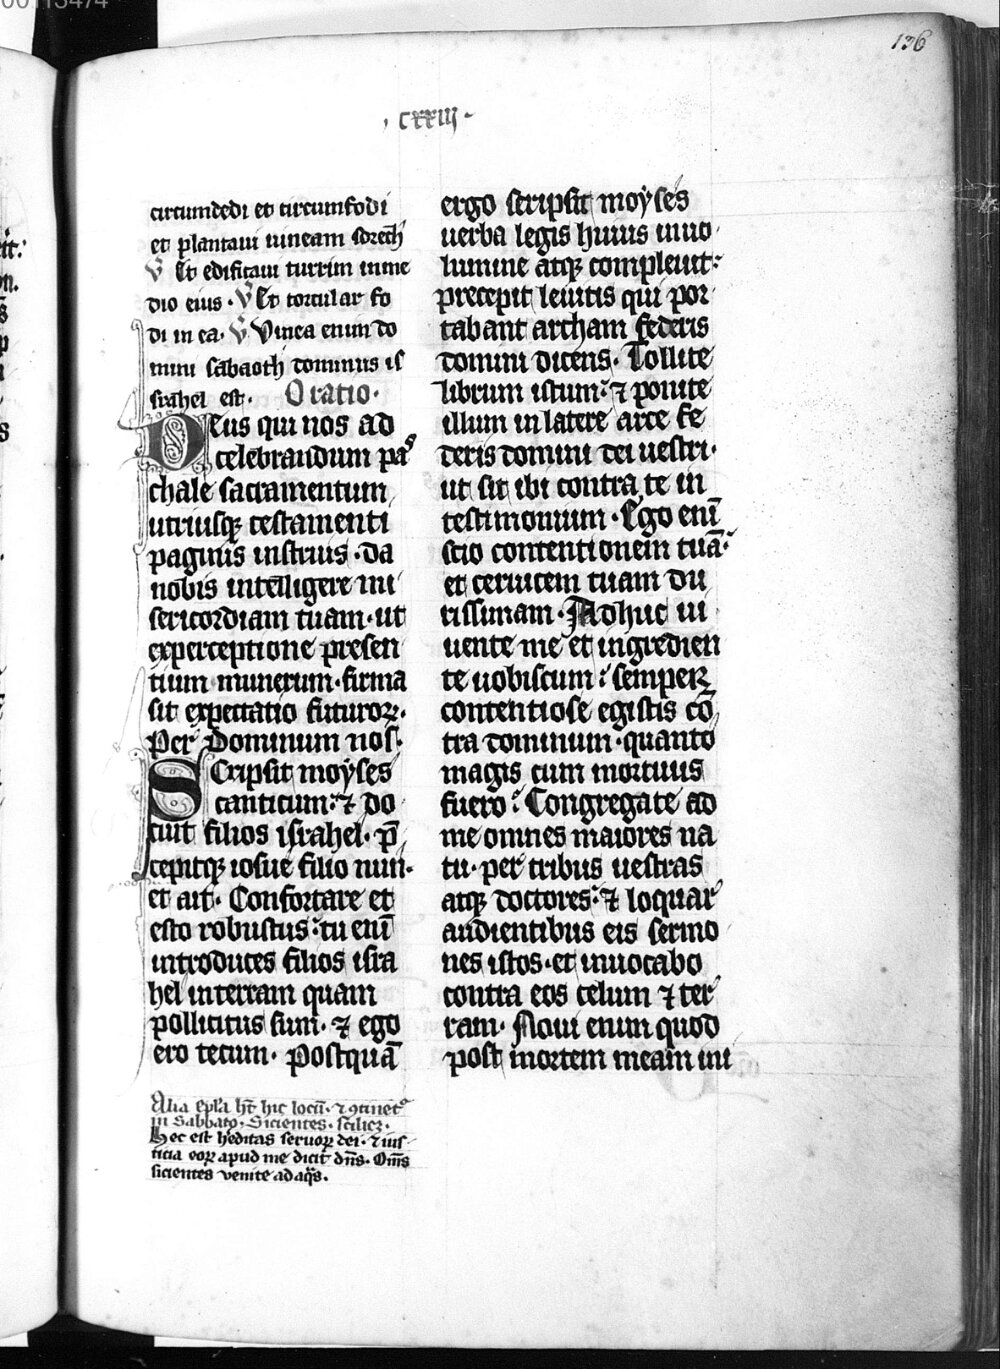 00113474
136
· cxxiij ·
circumdedi et circumfodi
et plantaui uineam sorech
V Et edificaui turrim in me
dio eius · V Et torcular fo
di in ea · V Vinea enim do
mini sabaoth domus is
srahel est · Oratio ·
Deus qui nos ad
celebrandum pas
chale sacramentum
utriusqꝫ testamenti
paginis instruis · da
nobis intelligere mi
sericordiam tuam · ut
ex perceptione presen
tium munerum · firma
sit expectatio futuroꝝ ·
Per Dominum nos ·
Scripsit moyses
canticum : ⁊ do
cuit filios israhel · p̄
cepitqꝫ iosue filio nun ·
et ait · Confortare et
esto robustus : tu eni̅
introduces filios isra
hel in terram quam
pollicitus sum · ⁊ ego
ero tecum · Postqua̅
Alia epl̅a h̅t hic locu̅ · ⁊ ꝯtinet᷑
in Sabbato · Sicientes · scilicꝫ ·
Hec est h'editas seruoꝝ dei · ⁊ ius
ticia eoꝝ apud me dicit dn̅s · Om̅s
sicientes venite ad aq̅s ·
ergo scripsit moyses
uerba legis huius in uo
lumine atqꝫ compleuit :
precepit leuitis qui por
tabant archam federis
domini dicens · Tollite
librum istum : ⁊ ponite
illum in latere arce fe
deris domini dei uestri ·
ut sit ibi contra te in
testimonium · Ego eni̅
scio contentionem tua̅ ·
et ceruicem tuam du
rissimam · Adhuc ui
uente me et ingredien
te uobiscum : semper
contentiose egistis co̅
tra dominum · quanto
magis cum mortuus
fuero : Congregate ad
me omnes maiores na
tu · per tribus uestras
atqꝫ doctores : ⁊ loquar
audientibus eis sermo
nes istos · et inuocabo
contra eos celum ⁊ ter
ram · Noui enim quod
post mortem meam ini